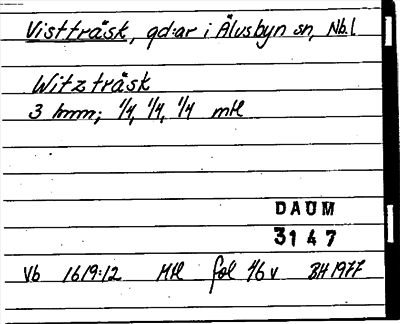 Vistträsk, gd:ar i Älvsbyn sn, Nb.l
Witzträsk
3 hmm; 1/4, 1/4, 1/4 mtl
DAUM
3147
Vb 1619:12 Mtl fol 46 v BH 1977